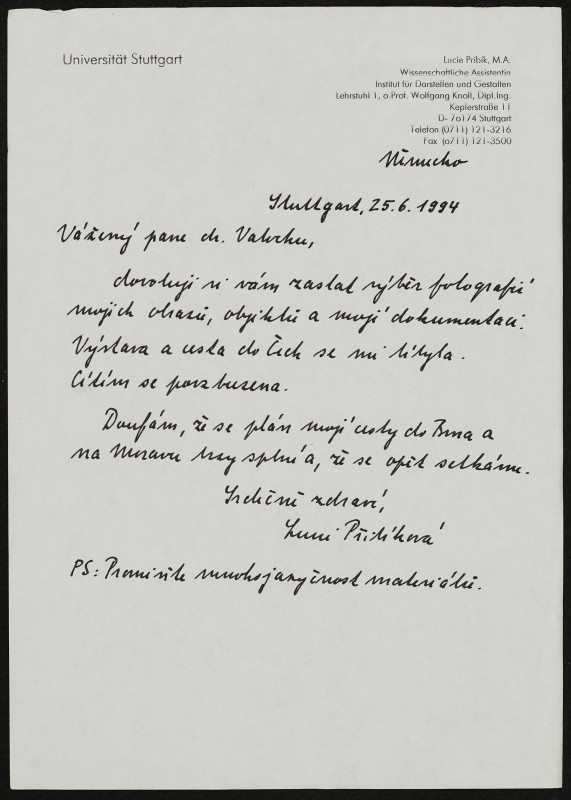 Universität Stuttgart
Lucie Pribik, M.A.
Wissenschaftliche Assistentin
Institut für Darstellen und Gestalten
Lehrstuhl 1, o.Prof. Wolfgang Knoll, Dipl.Ing.
Keplerstraße 11
D- 7o174 Stuttgart
Telefon (0711) 121-3216
Fax (o711) 121-3500
Německo
Stuttgart, 25.6. 1994
Vážený pane dr. Valochu,
dovoluji si vám zaslat výběr fotografií
mojich obrazů, objektů a mojí dokumentaci.
Výstava a cesta do Čech se mi líbyla.
Cítím se povzbuzena.
Doufám, že se plán mojí cesty do Brna a
na Moravu brzy splní a, že se opět setkáme.
Srdečně zdraví,
Lucie Přibíková
PS: Promiňte mnohojazyčnost materiálů.